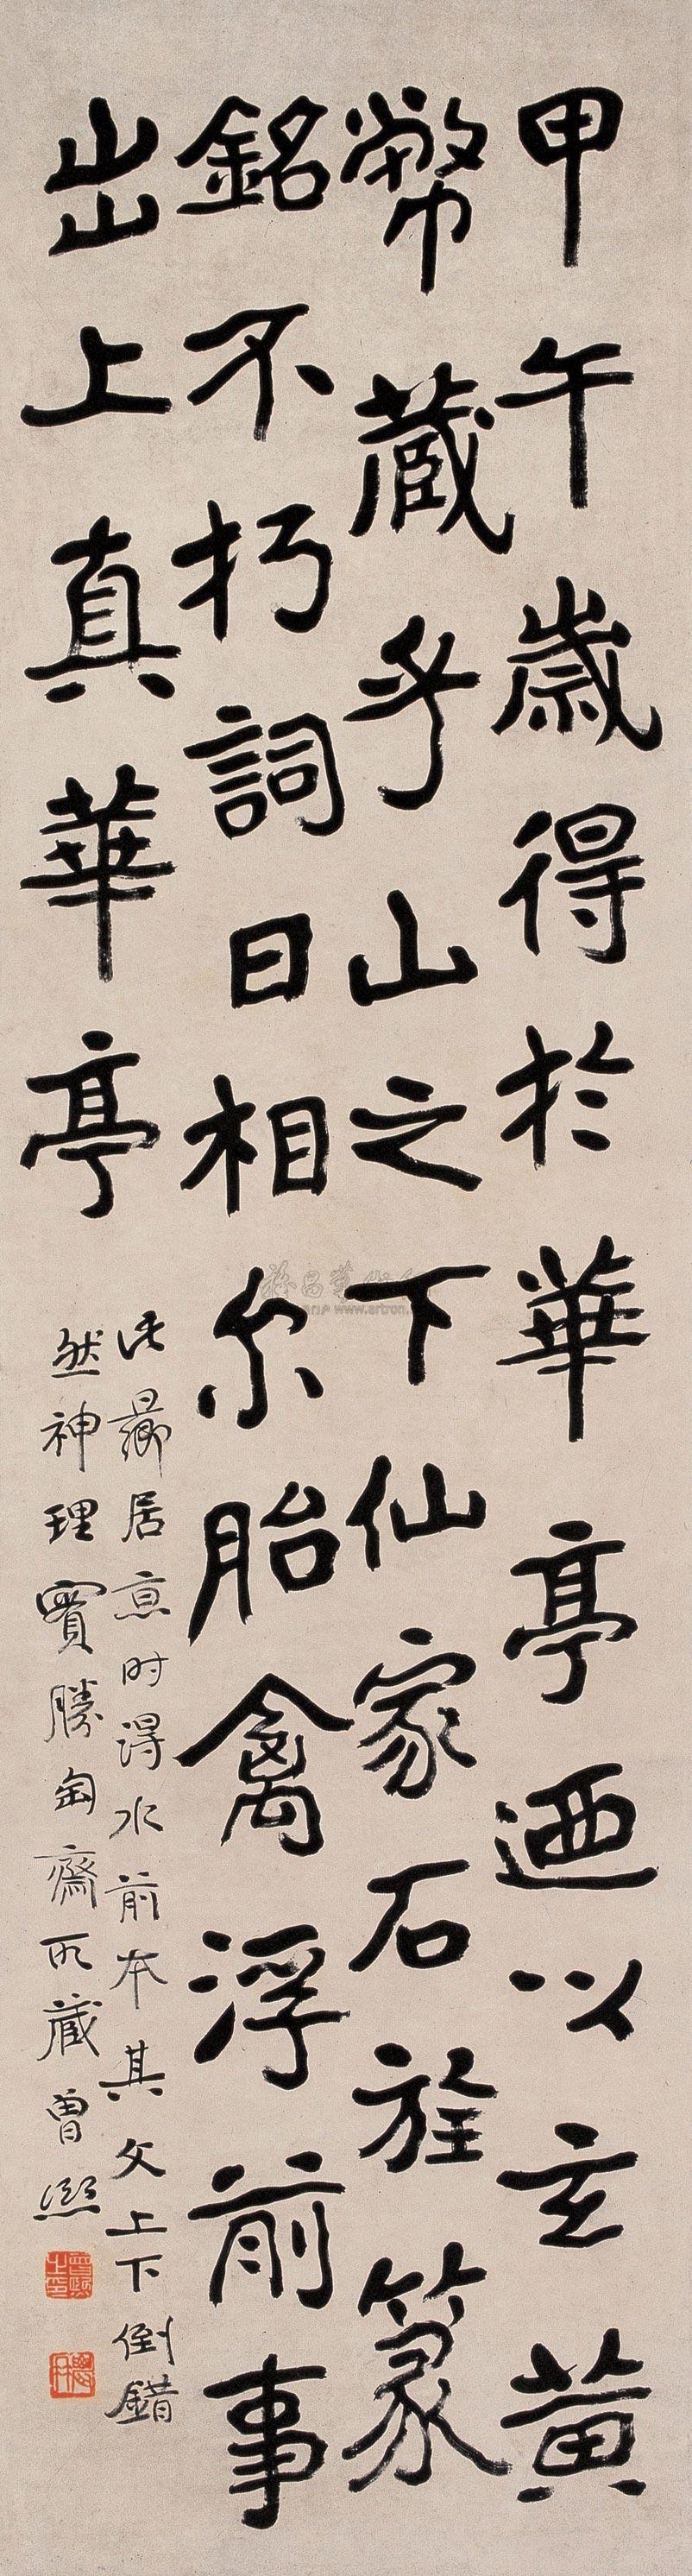 甲午歲得於華亭迺以玄黃
幣藏乎山之下仙家石旌篆
銘不朽詞曰相尔胎禽浮前事
出上真華亭
此藏居京时得水前本其文上下倒錯
然神理實勝匋齋所藏曾熙
www.artron.